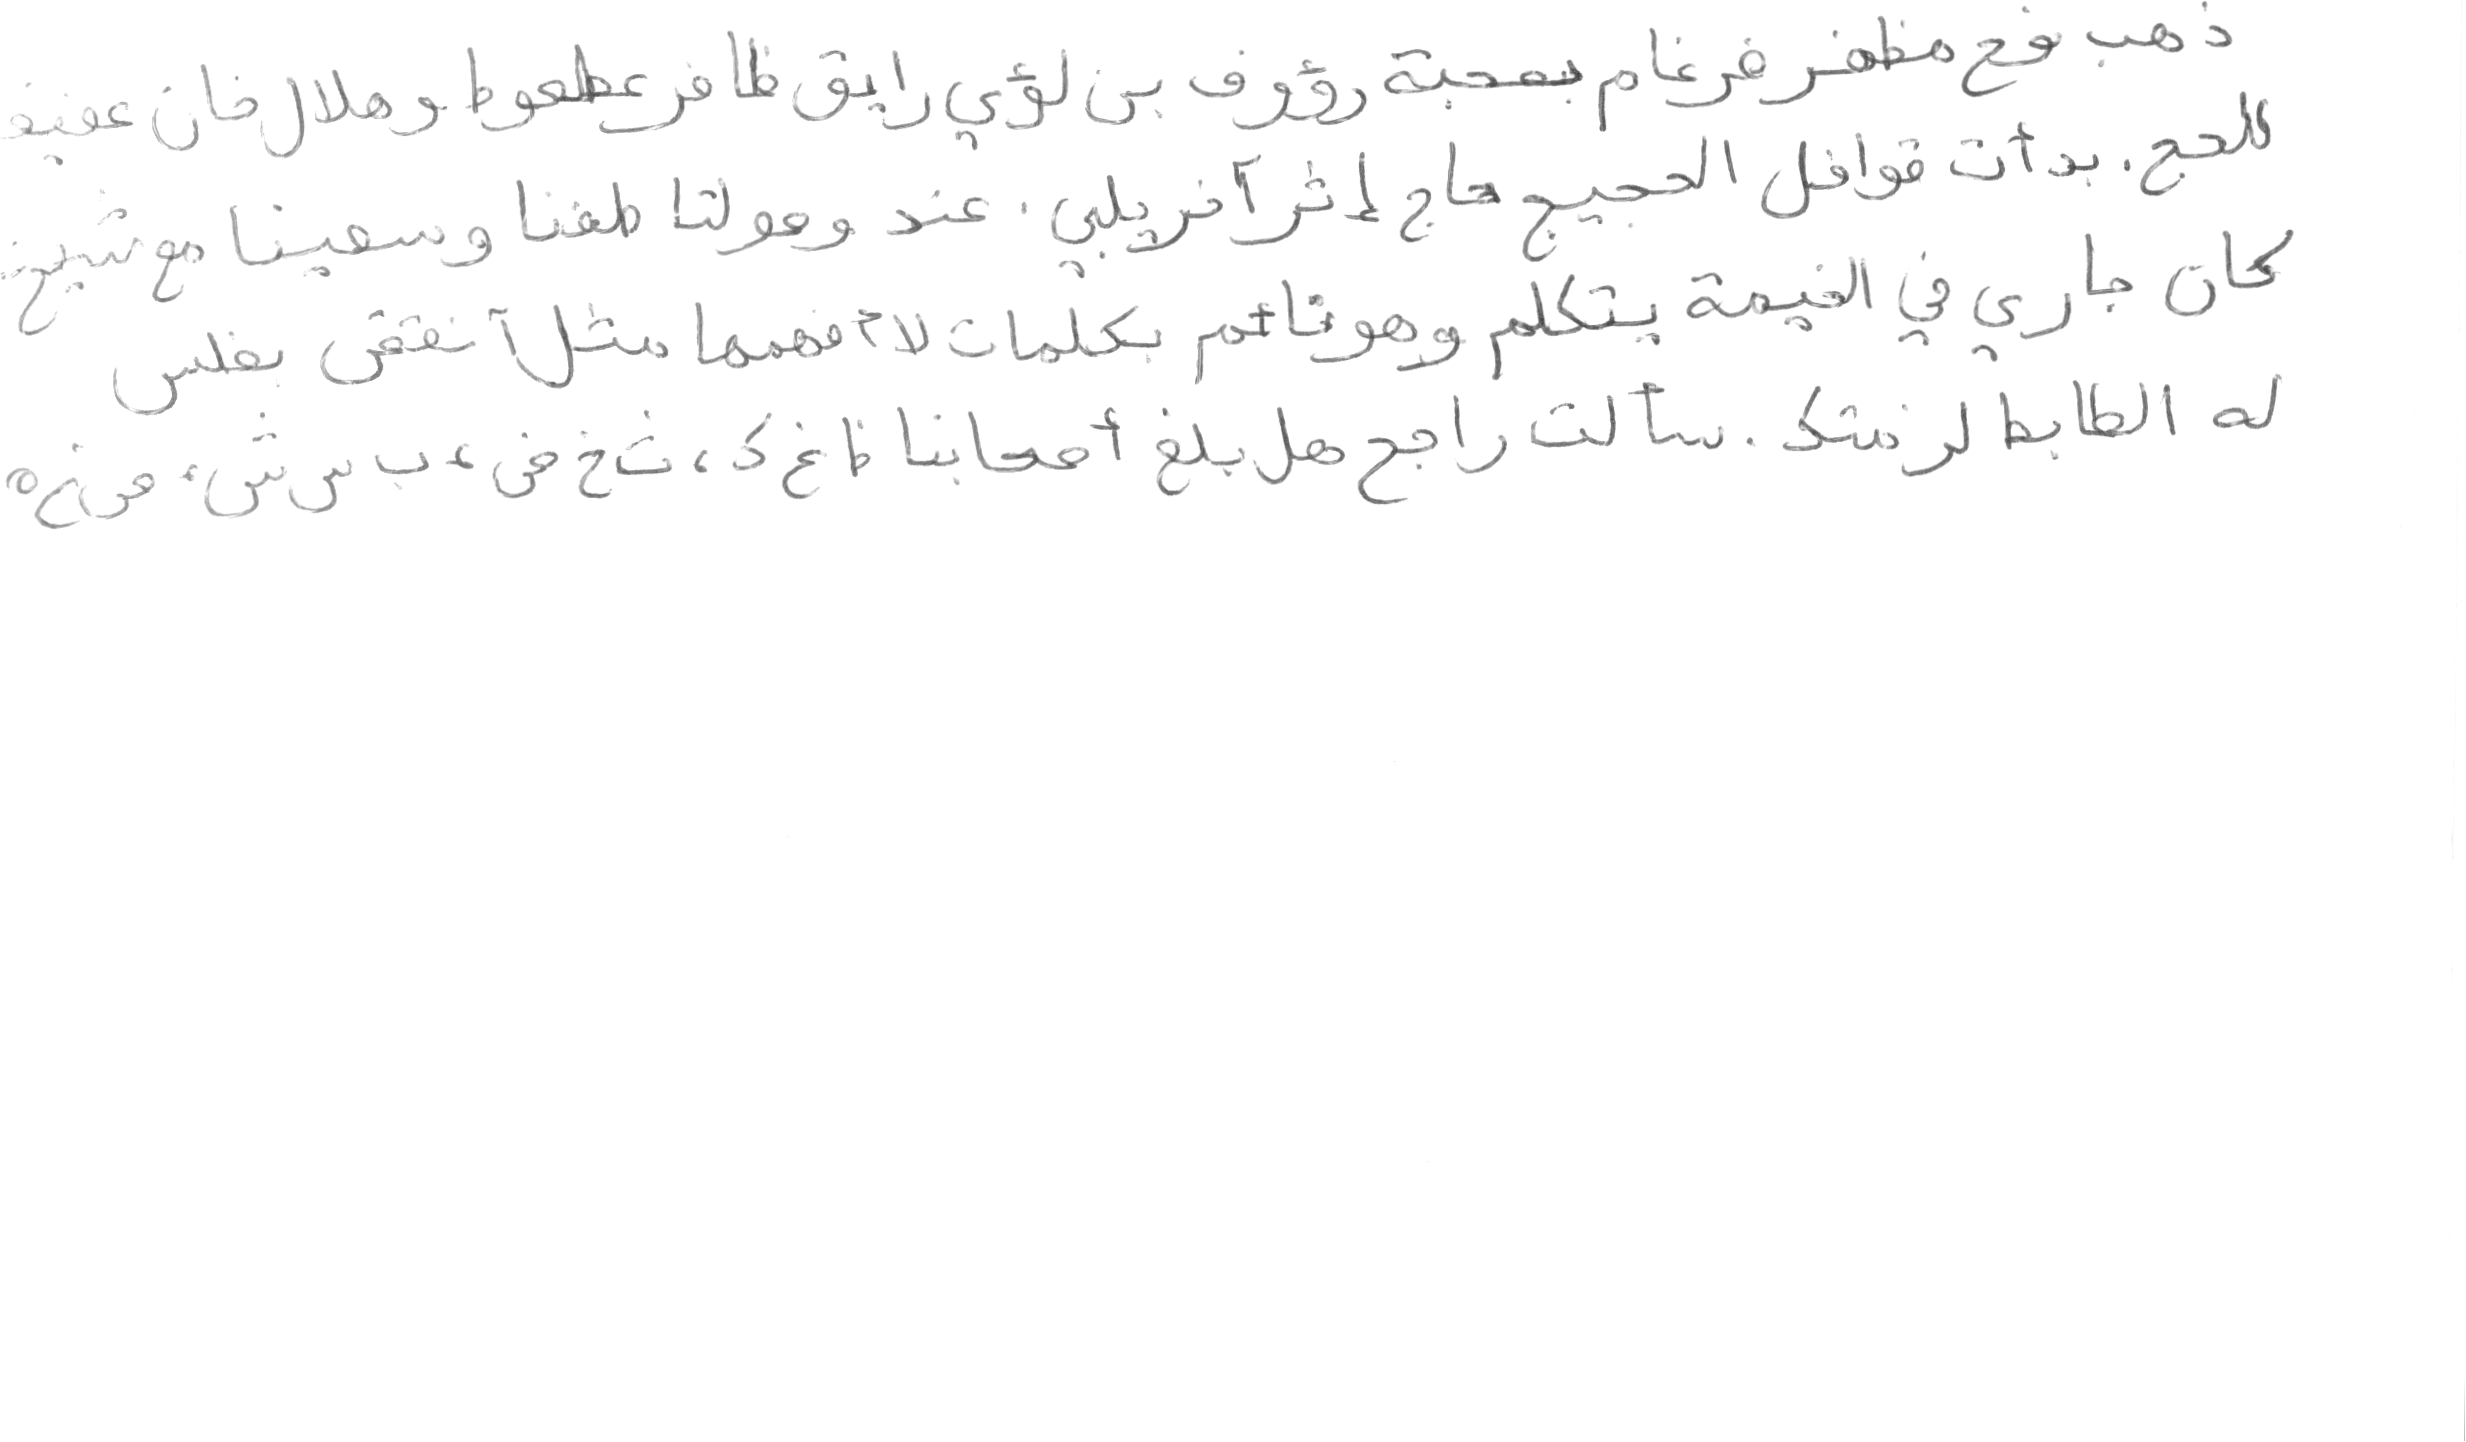 ذهب نوح مظفر ضرغام بصحبة رؤوف بن لؤي رايق ظافر عطعوط وهلال خان عفيف
للحج. بدأت قوافل الحجيج حاج إثر آخر يلبي. عند وصولنا طفنا وسعينا مع شيخ
كان جاري في الخيمة يتكلم وهو نائم بكلمات لا أفهمها مثل آنققن بغلس
له الطابط لرنتك. سألت راجح هل بلغ أصحابنا ظ غ ذ، ث خ ض، ب س ش، ص ع ه